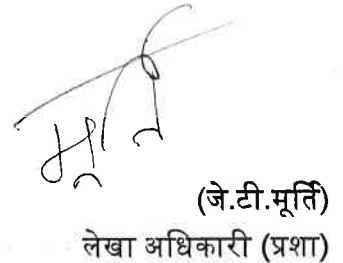 मूर्ति
(जे.टी.मूर्ति)
लेखा अधिकारी (प्रशा)